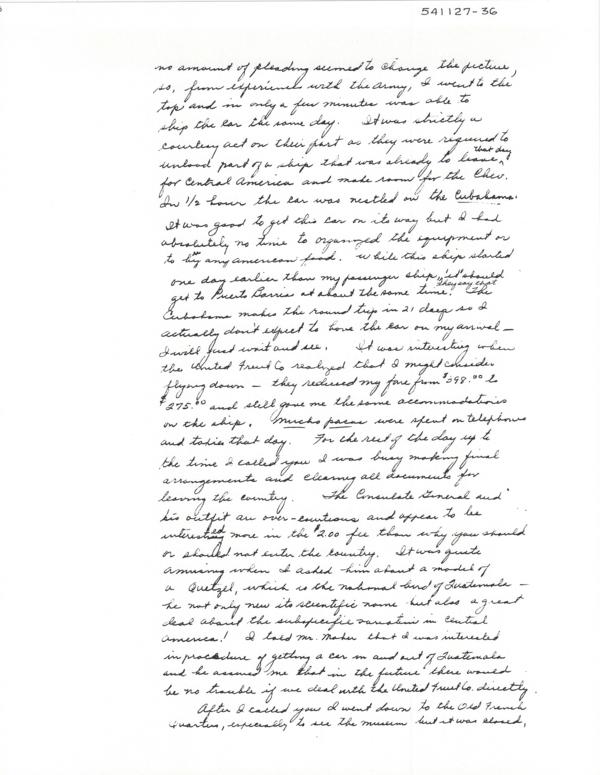 541127-36
no amount of pleading seemed to change the picture,
so, from experiences with the Army, I went to the
top and in only a few minutes was able to
ship the car the same day. It was strictly a
courtesy act on their part as they were required to
unload part of a ship that was already to leave that day
for Central America and make room for the Chev.
In 1/2 hour the car was nestled on the Cubahama.
It was good to get this car on its way but I had
absolutely no time to organized the equipment or
to buy any american food. While this ship started
one day earlier than my passenger ship, it should
get to Puerto Barrios at about the same time. They say that The
Cubahama makes the round trip in 21 days so I
actually don't expect to have the car on my arrival —
I will just wait and see. It was interesting when
the United Fruit Co realized that I might consider
flying down — they reduced my fare from $398.00 to
$275.00 and still gave me the same accommodations
on the ship. Mucho pasos were spent on telephones
and taxies that day. For the rest of the day up to
the time I called you I was busy making final
arrangements and clearing all documents for
leaving the country. The Consulate General and
his outfit are over-courteous and appear to be
interested more in the $2.00 fee than why you should
or should not enter the country. It was quite
amusing when I asked him about a model of
a Quetzel, which is the national bird of Guatemala —
he not only new its scientific name but also a great
deal about the subspecific variation in Central
America! I told Mr. Maher that I was interested
in procedure of getting a car in and out of Guatemala
and he assured me that in the future there would
be no trouble if we deal with the United Fruit Co. directly.
After I called you I went down to the Old French
Quarters, especially to see the museum but it was closed,